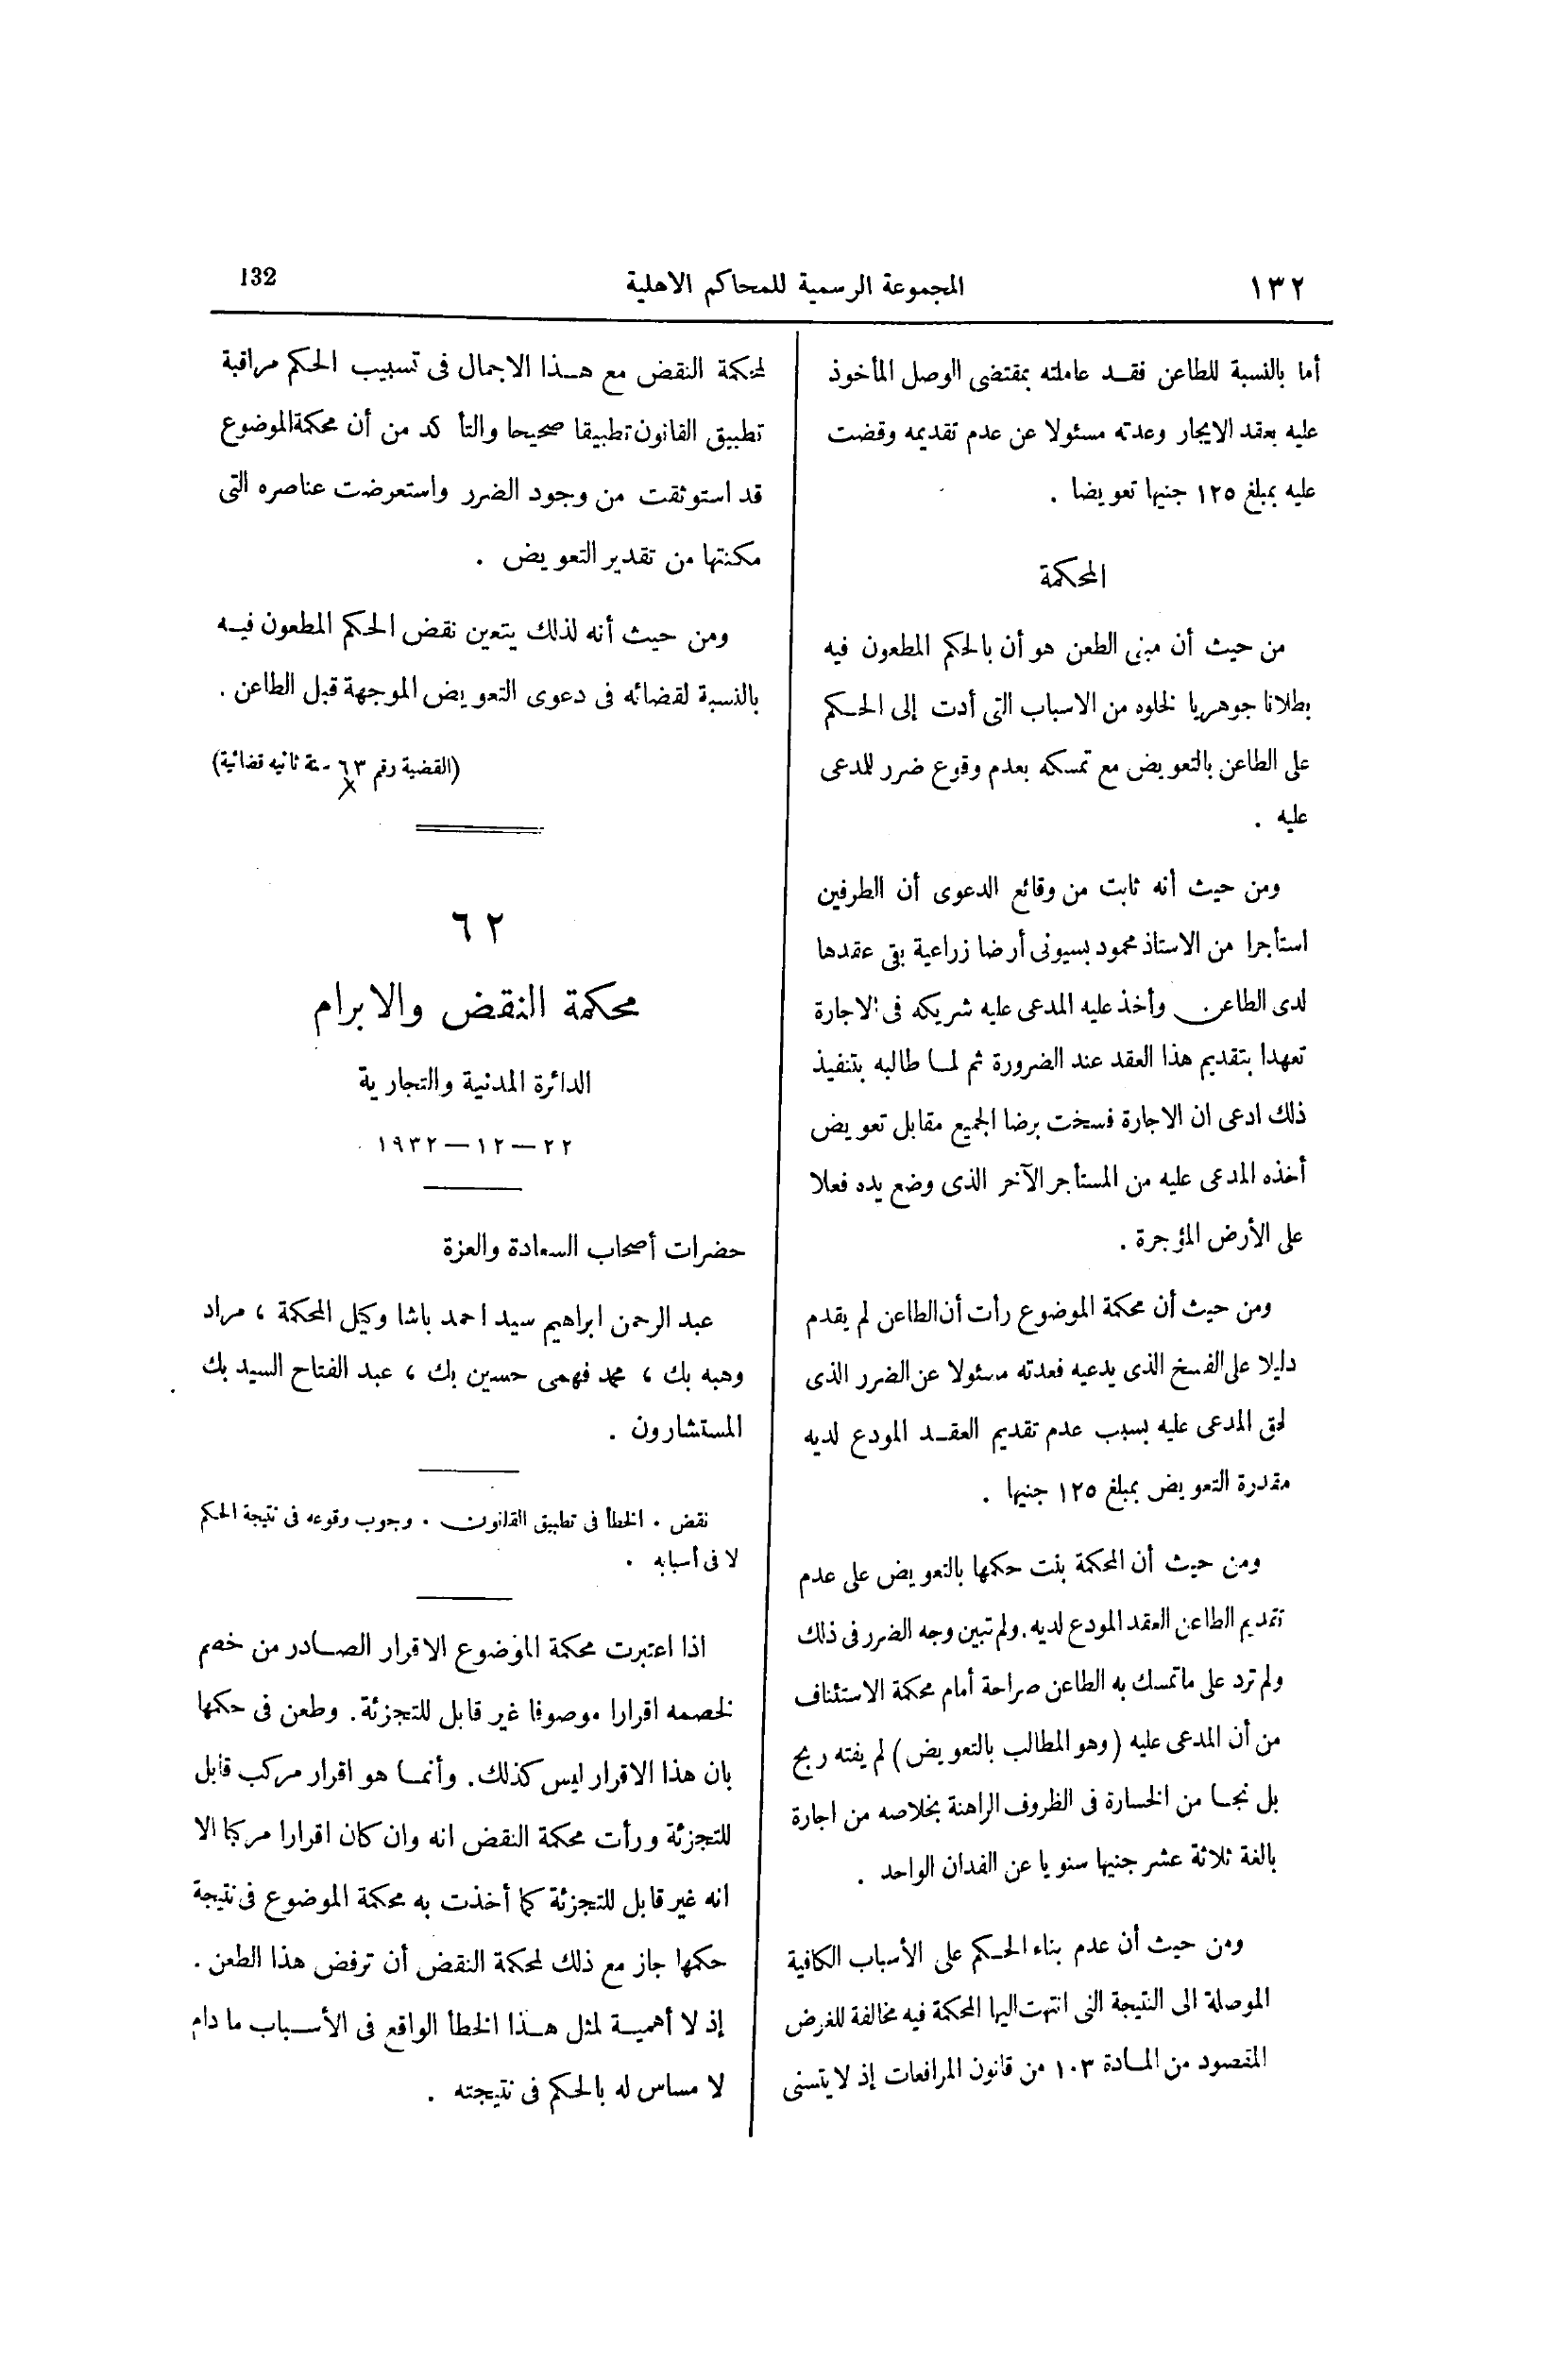 ١٣٢
المجموعة الرسمية للمحاكم الاهلية
132
أما بالنسبة للطاعن فقد عاملته بمقتضى الوصل المأخوذ
عليه بعقد الايجار وعدته مسئولا عن عدم تقديمه وقضت
عليه بمبلغ ١٢٥ جنيها تعويضا .
المحكمة
من حيث أن مبنى الطعن هو أن بالحكم المطعون فيه
بطلانا جوهريا لخلوه من الاسباب التى أدت إلى الحكم
على الطاعن بالتعويض مع تمسكه بعدم وقوع ضرر للمدعى
عليه .
ومن حيث أنه ثابت من وقائع الدعوى أن الطرفين
استأجرا من الاستاذ محمود بسيونى أرضا زراعية بقى عقدها
لدى الطاعن وأخذ عليه المدعى عليه شريكه فى الاجارة
تعهدا بتقديم هذا العقد عند الضرورة ثم لما طالبه بتنفيذ
ذلك ادعى ان الاجارة فسخت برضا الجميع مقابل تعويض
أخذه المدعى عليه من المستأجر الآخر الذى وضع يده فعلا
على الأرض المؤجرة .
ومن حيث أن محكمة الموضوع رأت أن الطاعن لم يقدم
دليلا على الفسخ الذى يدعيه فعدته مسئولا عن الضرر الذى
لحق المدعى عليه بسبب عدم تقديم العقد المودع لديه
مقدرة التعويض بمبلغ ١٢٥ جنيها .
ومن حيث أن المحكمة بنت حكمها بالتعويض على عدم
تقديم الطاعن العقد المودع لديه . ولم تبين وجه الضرر فى ذلك
ولم ترد على ماتمسك به الطاعن صراحة أمام محكمة الاستئناف
من أن المدعى عليه (وهو المطالب بالتعويض) لم يفته ربح
بل نجا من الخسارة فى الظروف الراهنة بخلاصه من اجارة
بالغة ثلاثة عشر جنيها سنويا عن الفدان الواحد .
ومن حيث أن عدم بناء الحكم على الأسباب الكافية
الموصلة الى النتيجة التى انتهت اليها المحكمة فيه مخالفة للغرض
المقصود من المادة ١٠٣ من قانون المرافعات إذ لا يتسنى
لمحكمة النقض مع هذا الاجمال فى تسبيب الحكم مراقبة
تطبيق القانون تطبيقا صحيحا والتأكد من أن محكمة الموضوع
قد استوثقت من وجود الضرر واستعرضت عناصره التى
مكنتها من تقدير التعويض .
ومن حيث أنه لذلك يتعين نقض الحكم المطعون فيه
بالنسبة لقضائه فى دعوى التعويض الموجهة قبل الطاعن .
(القضية رقم ٦٣ سنة ثانيه قضائية)
٦٢
محكمة النقض والابرام
الدائرة المدنية والتجارية
٢٢ — ١٢ — ١٩٣٢
حضرات أصحاب السعادة والعزة
عبد الرحمن ابراهيم سيد احمد باشا وكيل المحكمة ، مراد
وهبه بك ، محمد فهمى حسين بك ، عبد الفتاح السيد بك
المستشارون .
نقض . الخطأ فى تطبيق القانون . وجوب وقوعه فى نتيجة الحكم
لا فى أسبابه .
اذا اعتبرت محكمة الموضوع الاقرار الصادر من خصم
لخصمه اقرارا موصوفا غير قابل للتجزئة . وطعن فى حكمها
بان هذا الاقرار ليس كذلك . وأنما هو اقرار مركب قابل
للتجزئة ورأت محكمة النقض انه وان كان اقرارا مركبا الا
انه غير قابل للتجزئة كما أخذت به محكمة الموضوع فى نتيجة
حكمها جاز مع ذلك لمحكمة النقض أن ترفض هذا الطعن .
إذ لا أهمية لمثل هذا الخطأ الواقع فى الأسباب ما دام
لا مساس له بالحكم فى نتيجته .